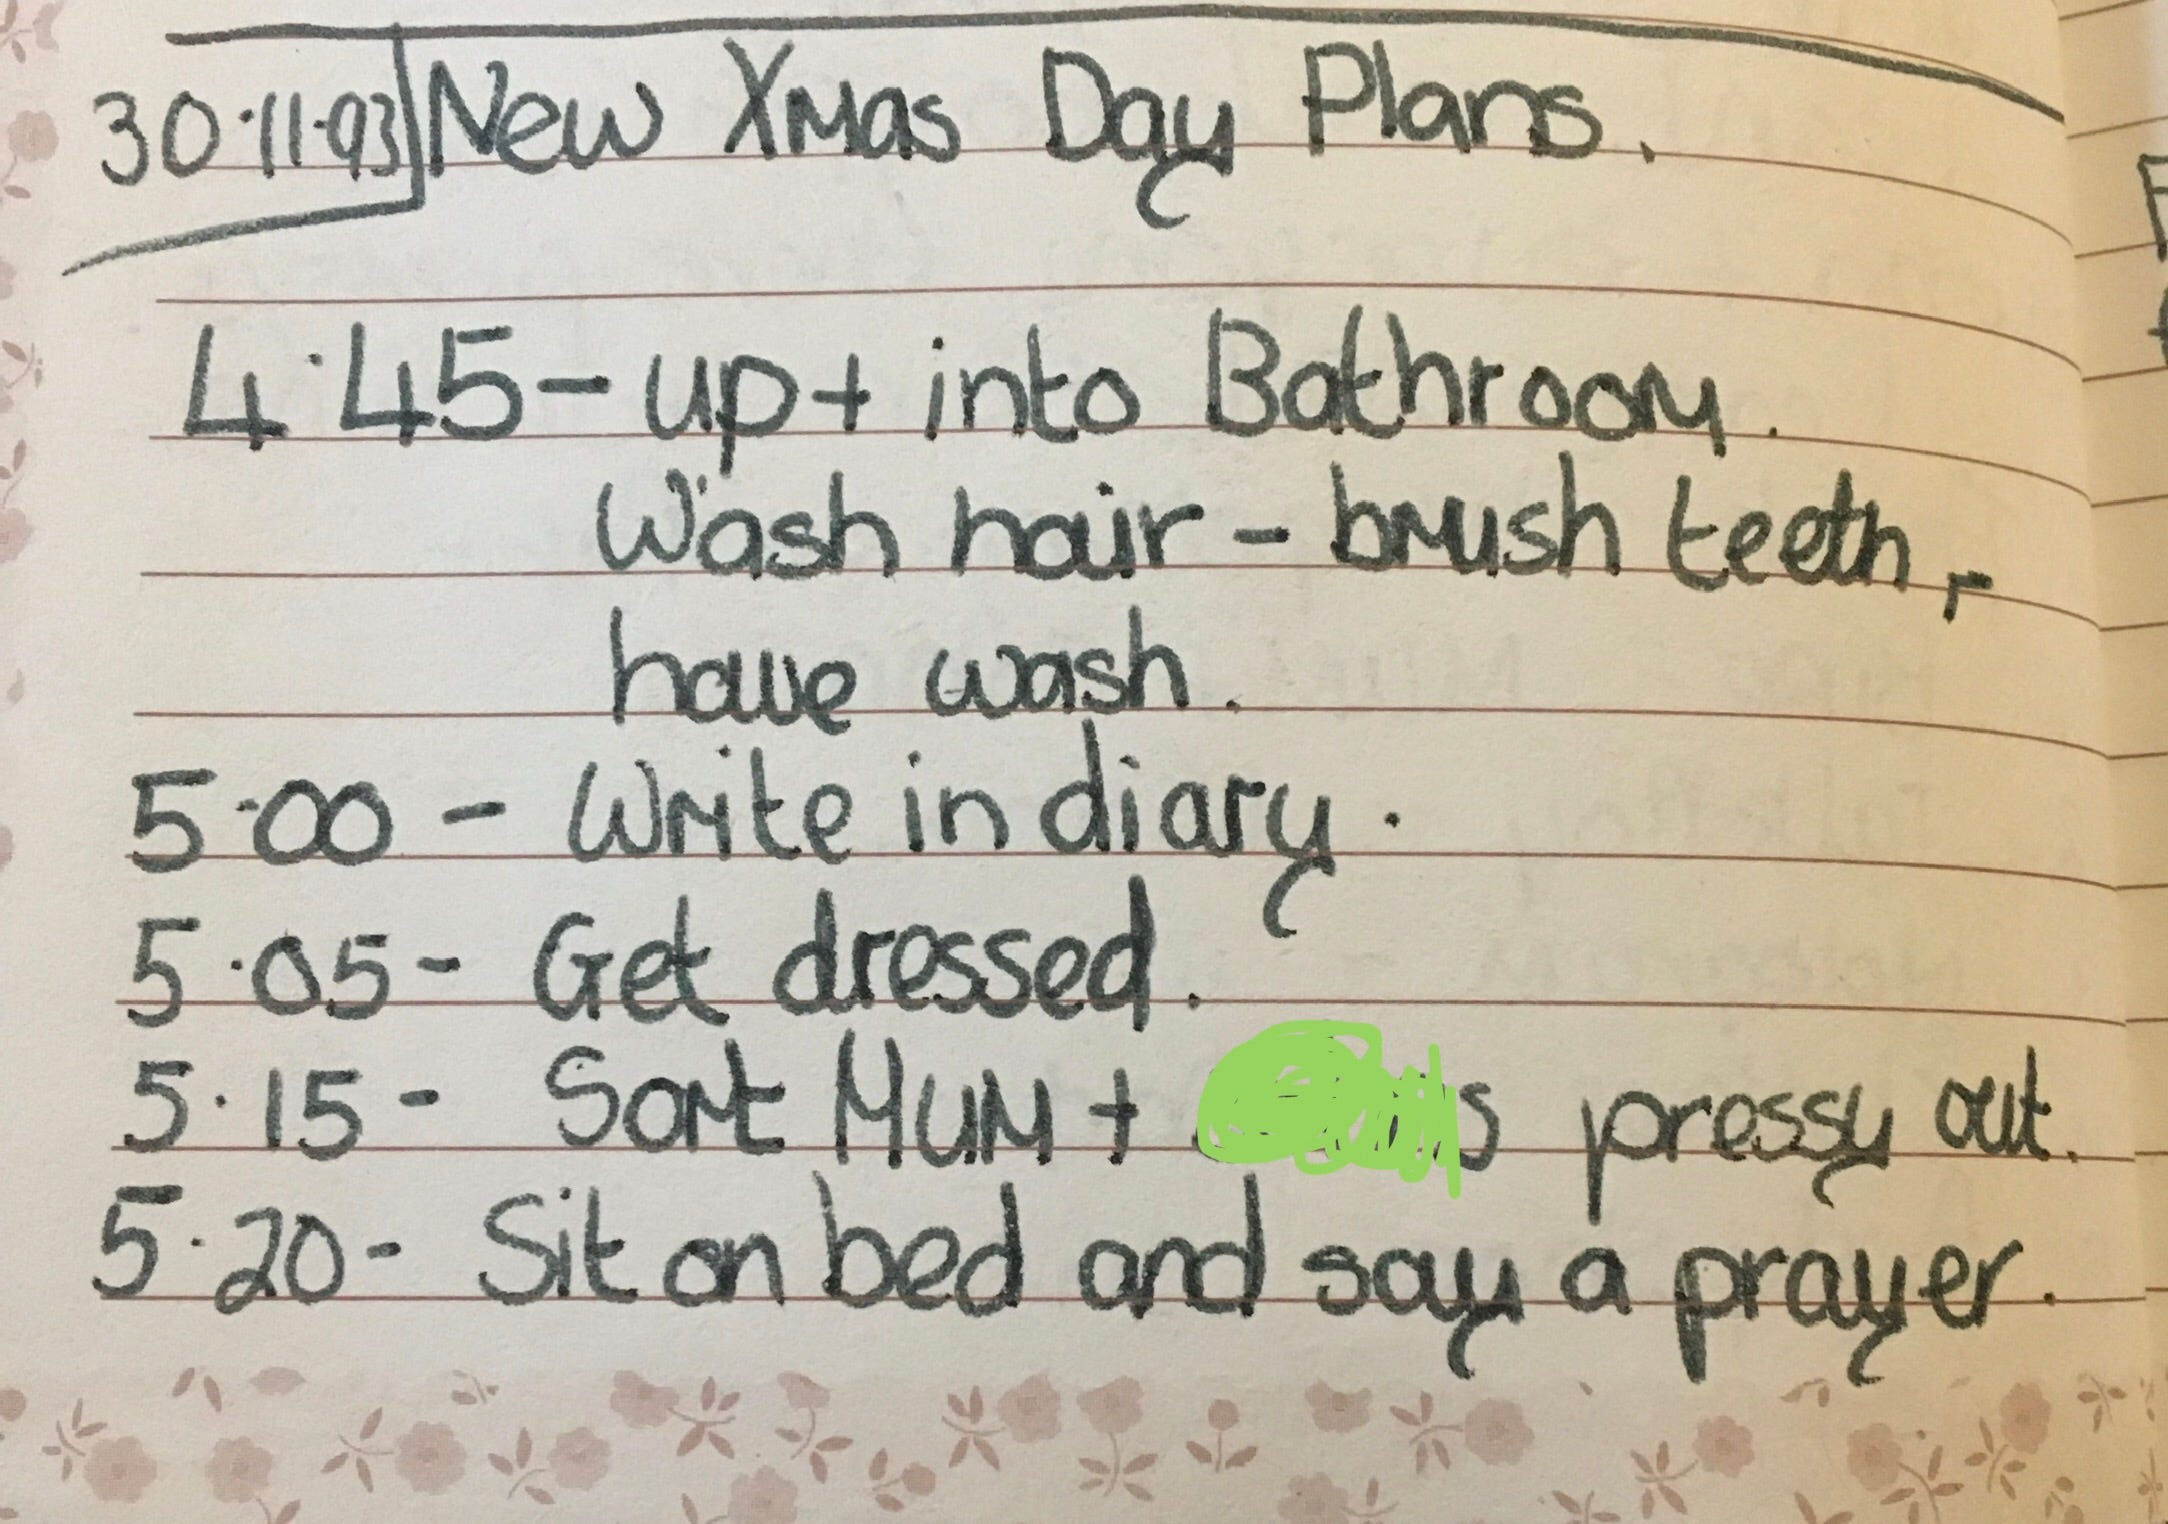 30·11·93 New Xmas Day Plans.
4·45 - up + into Bathroom.
Wash hair - brush teeth, -
have wash.
5·00 - Write in diary.
5·05 - Get dressed.
5·15 - Sort Mum + s pressy out.
5·20 - Sit on bed and say a prayer.